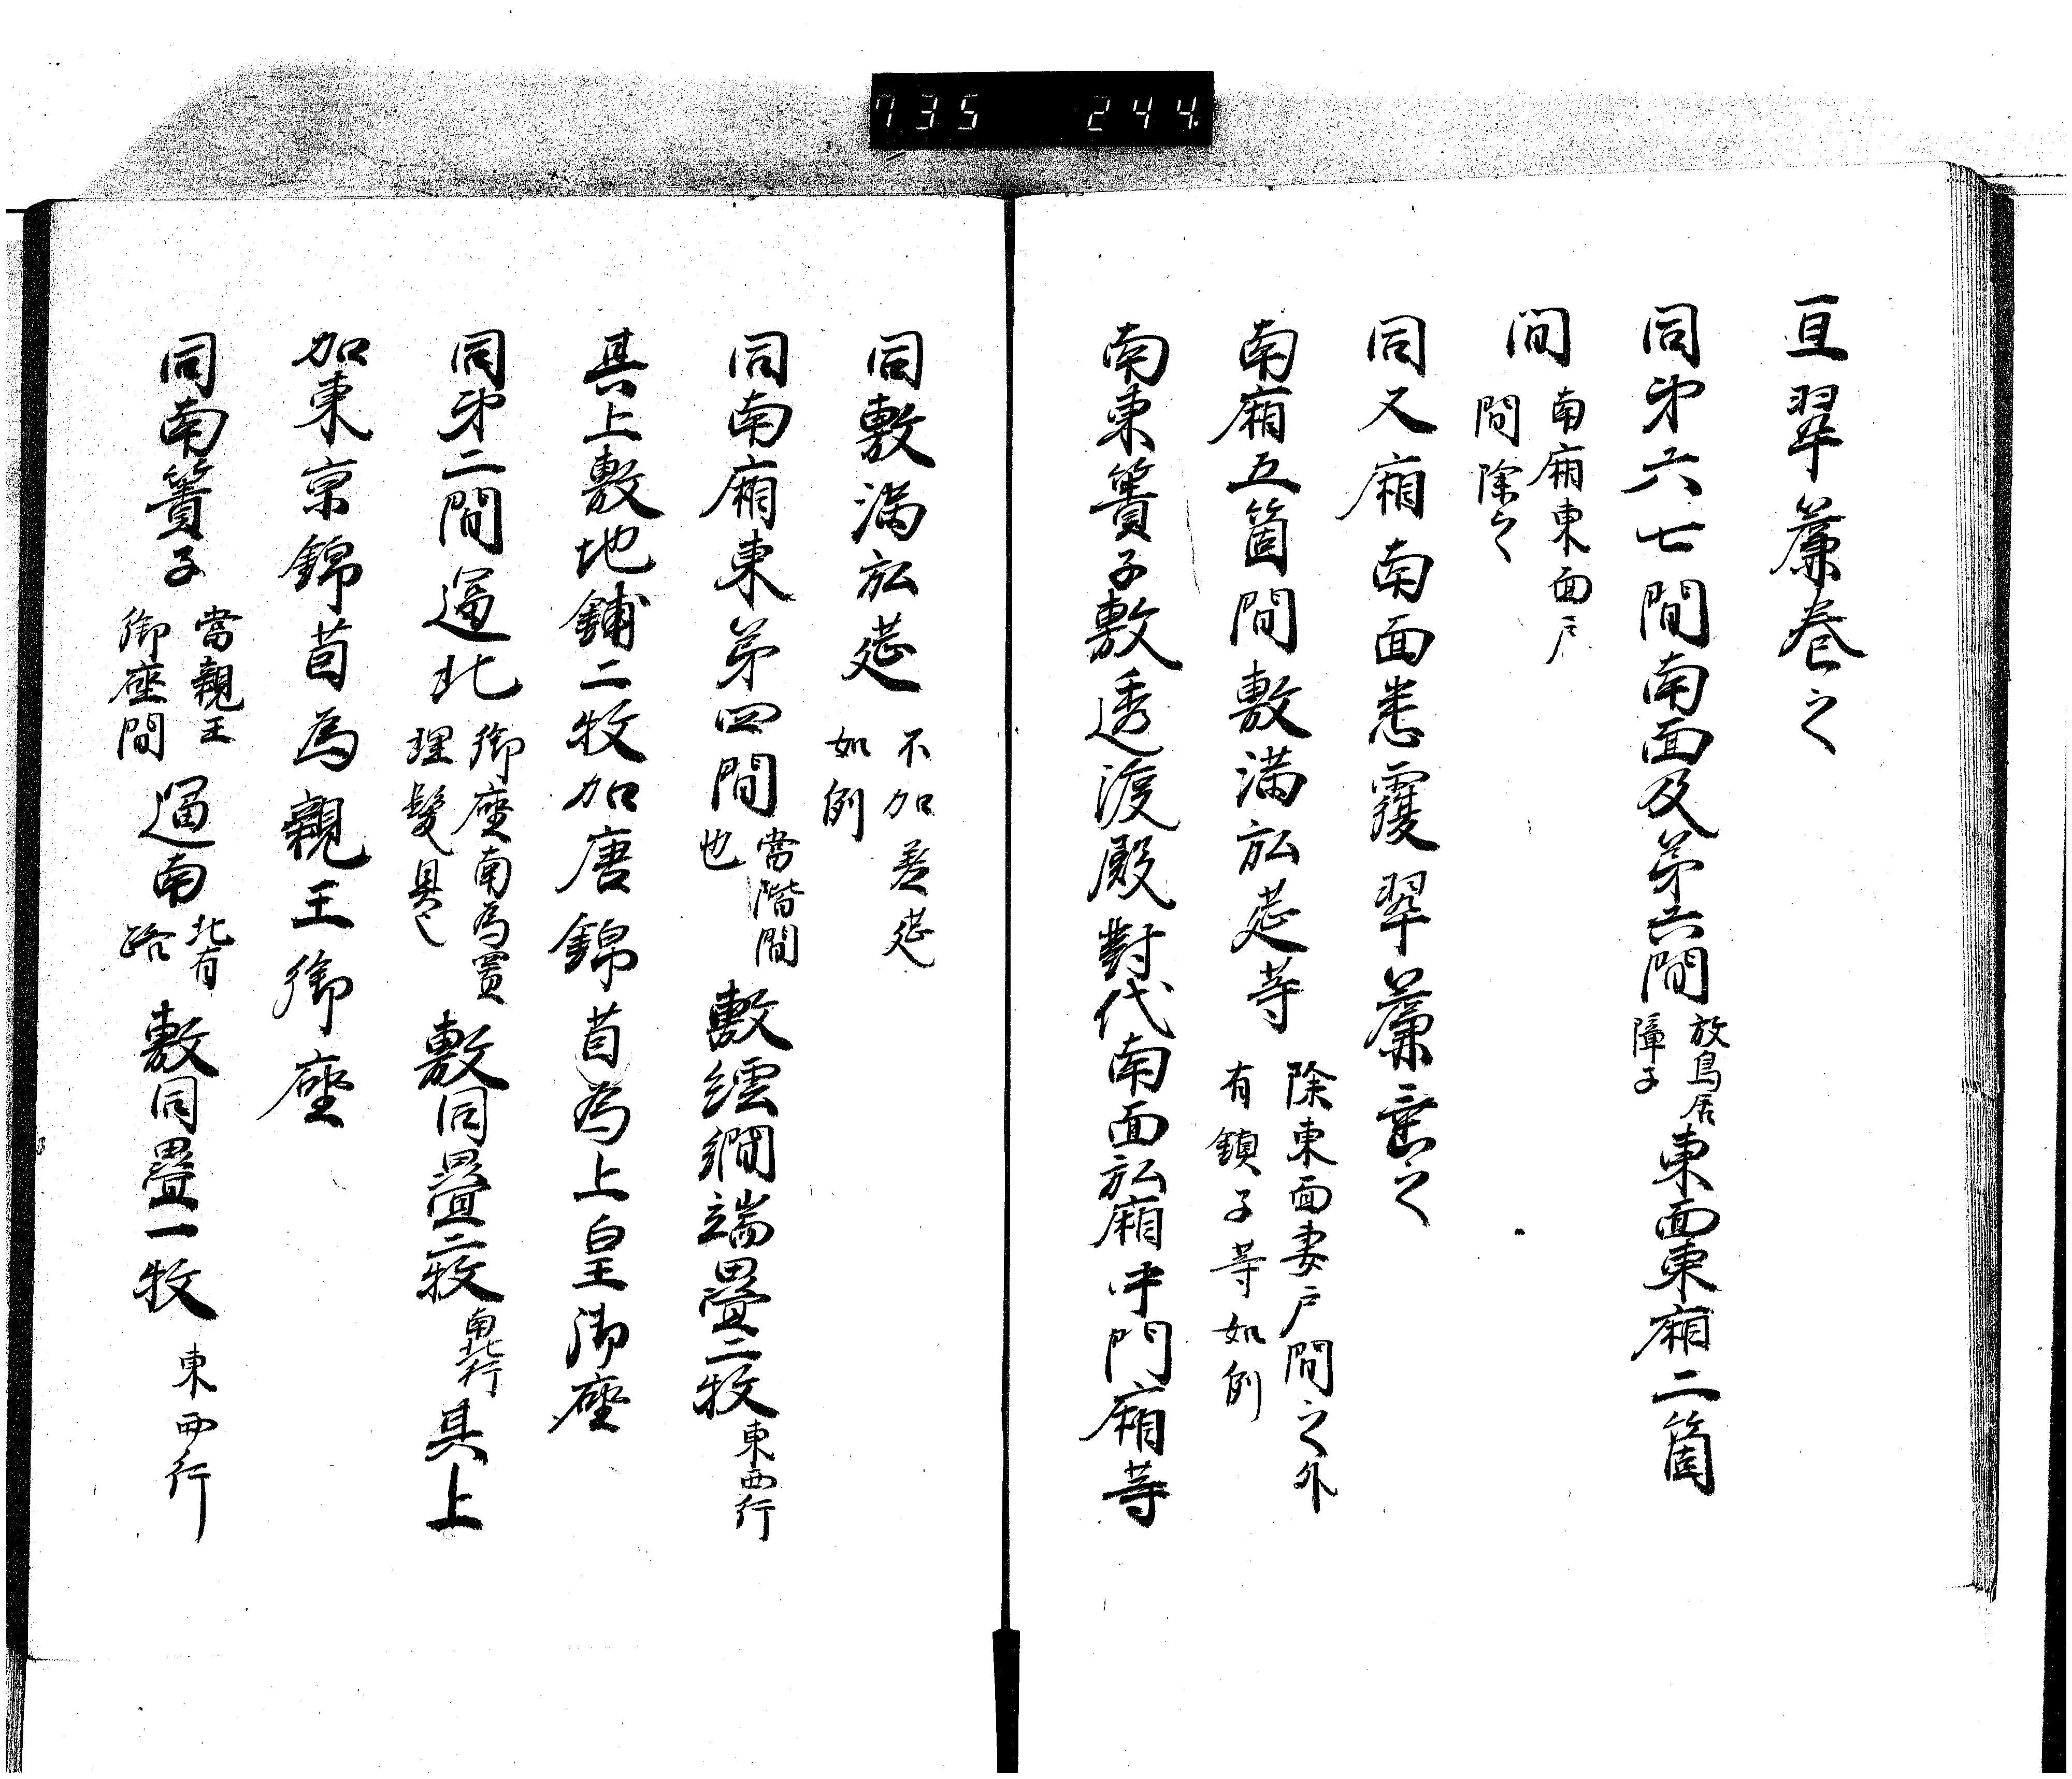 735 244
亘翠簾巻之
同第六七間南面及第六間放鳥居障子東面東廂二箇
間南廂東面戸間除之
同又廂南面悉覆翠簾垂之
南廂五箇間敷満弘莚等除東面妻戸間之外有鎮子等如例
南東簀子敷透渡殿對代南面弘廂中門廂等
同敷満弘莚不加差莚如例
同南廂東第四間當階間也敷繧繝端疊二枚東西行
其上敷地鋪二枚加唐錦茵為上皇御座
同第二間逼北御座南為置理髪具也敷同疊二枚南北行其上
加東京錦茵為親王御座
同南簀子當親王御座間逼南北有路敷同疊一枚東西行